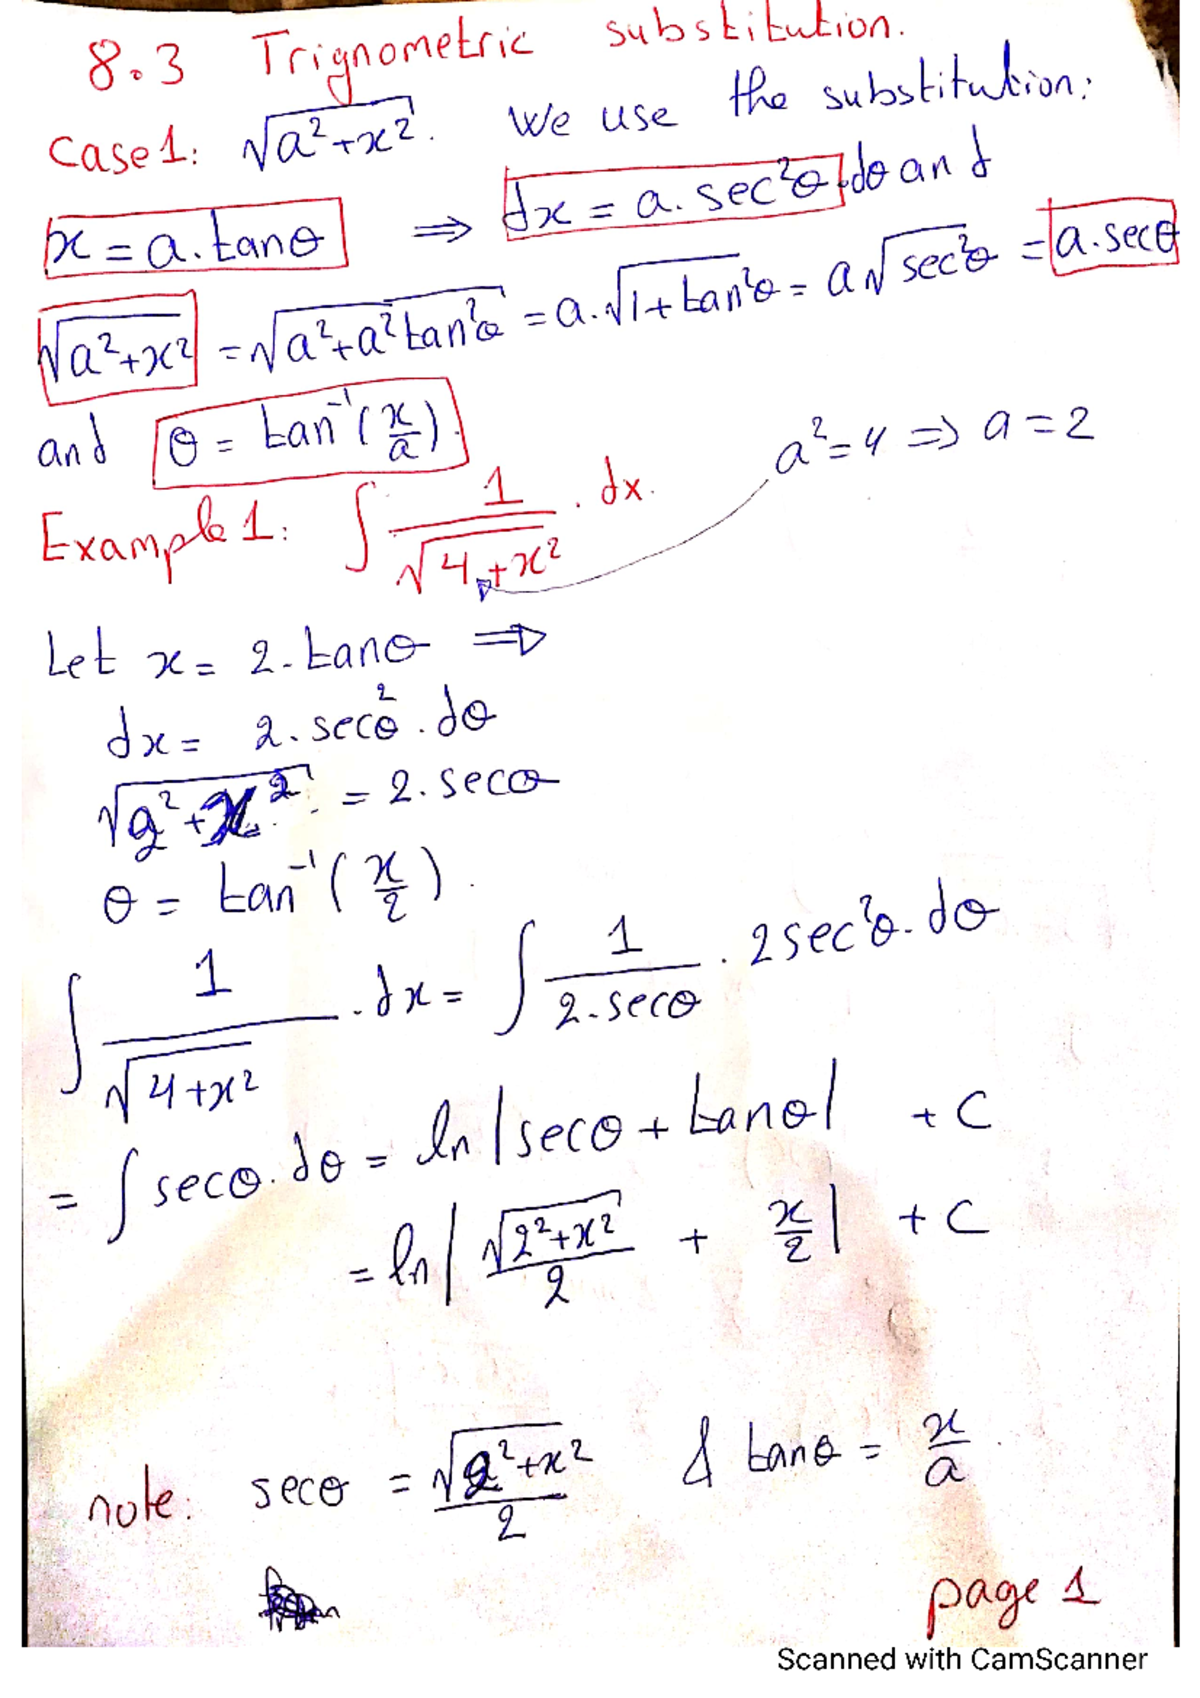 8.3 Trignometric substitution.
Case 1: √(a²+x²). We use the substitution:
x = a.tanθ ⇒ dx = a.sec²θ.dθ and
√(a²+x²) = √(a²+a²tan²θ) = a.√(1+tan²θ) = a√(sec²θ) = a.secθ
and θ = tan⁻¹(x/a).
a² = 4 ⇒ a = 2
Example 1: ∫ 1/√(4+x²) . dx.
Let x = 2.tanθ ⇒
dx = 2.sec²θ.dθ
√(2²+x²) = 2.secθ
θ = tan⁻¹(x/2).
∫ 1/√(4+x²) .dx = ∫ 1/(2.secθ) . 2sec²θ.dθ
= ∫ secθ.dθ = ln|secθ + tanθ| + C
= ln|√(2²+x²)/2 + x/2| + C
note: secθ = √(2²+x²)/2 & tanθ = x/a.
page 1
Scanned with CamScanner